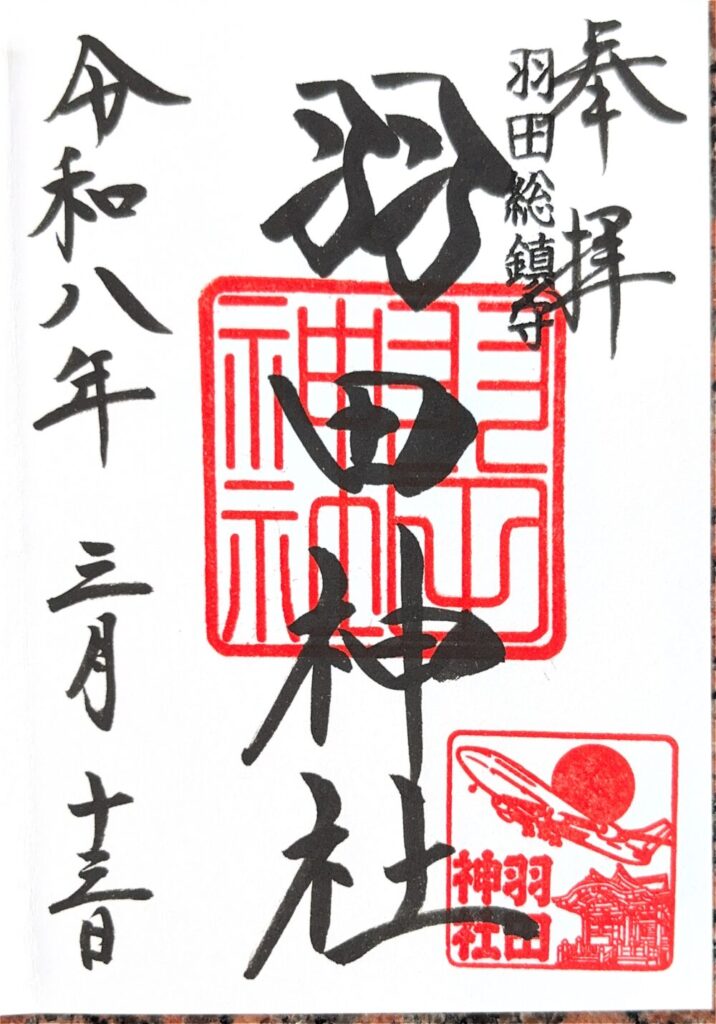 奉拝
羽田総鎮守
羽田神社
羽田神社
令和八年 三月 十三日
羽田
神社